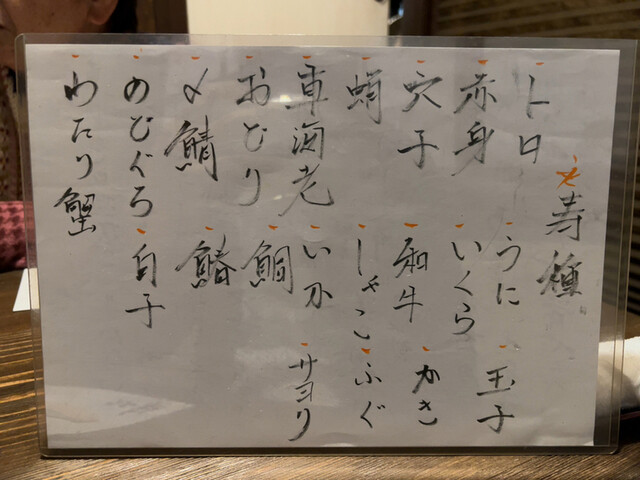 寿種
トロ
うに
玉子
赤身
いくら
穴子
和牛
かき
蛸
しゃこ
ふぐ
車海老
いか
サヨリ
おどり
鯛
〆鯖
鰆
のどぐろ
白子
わたり蟹